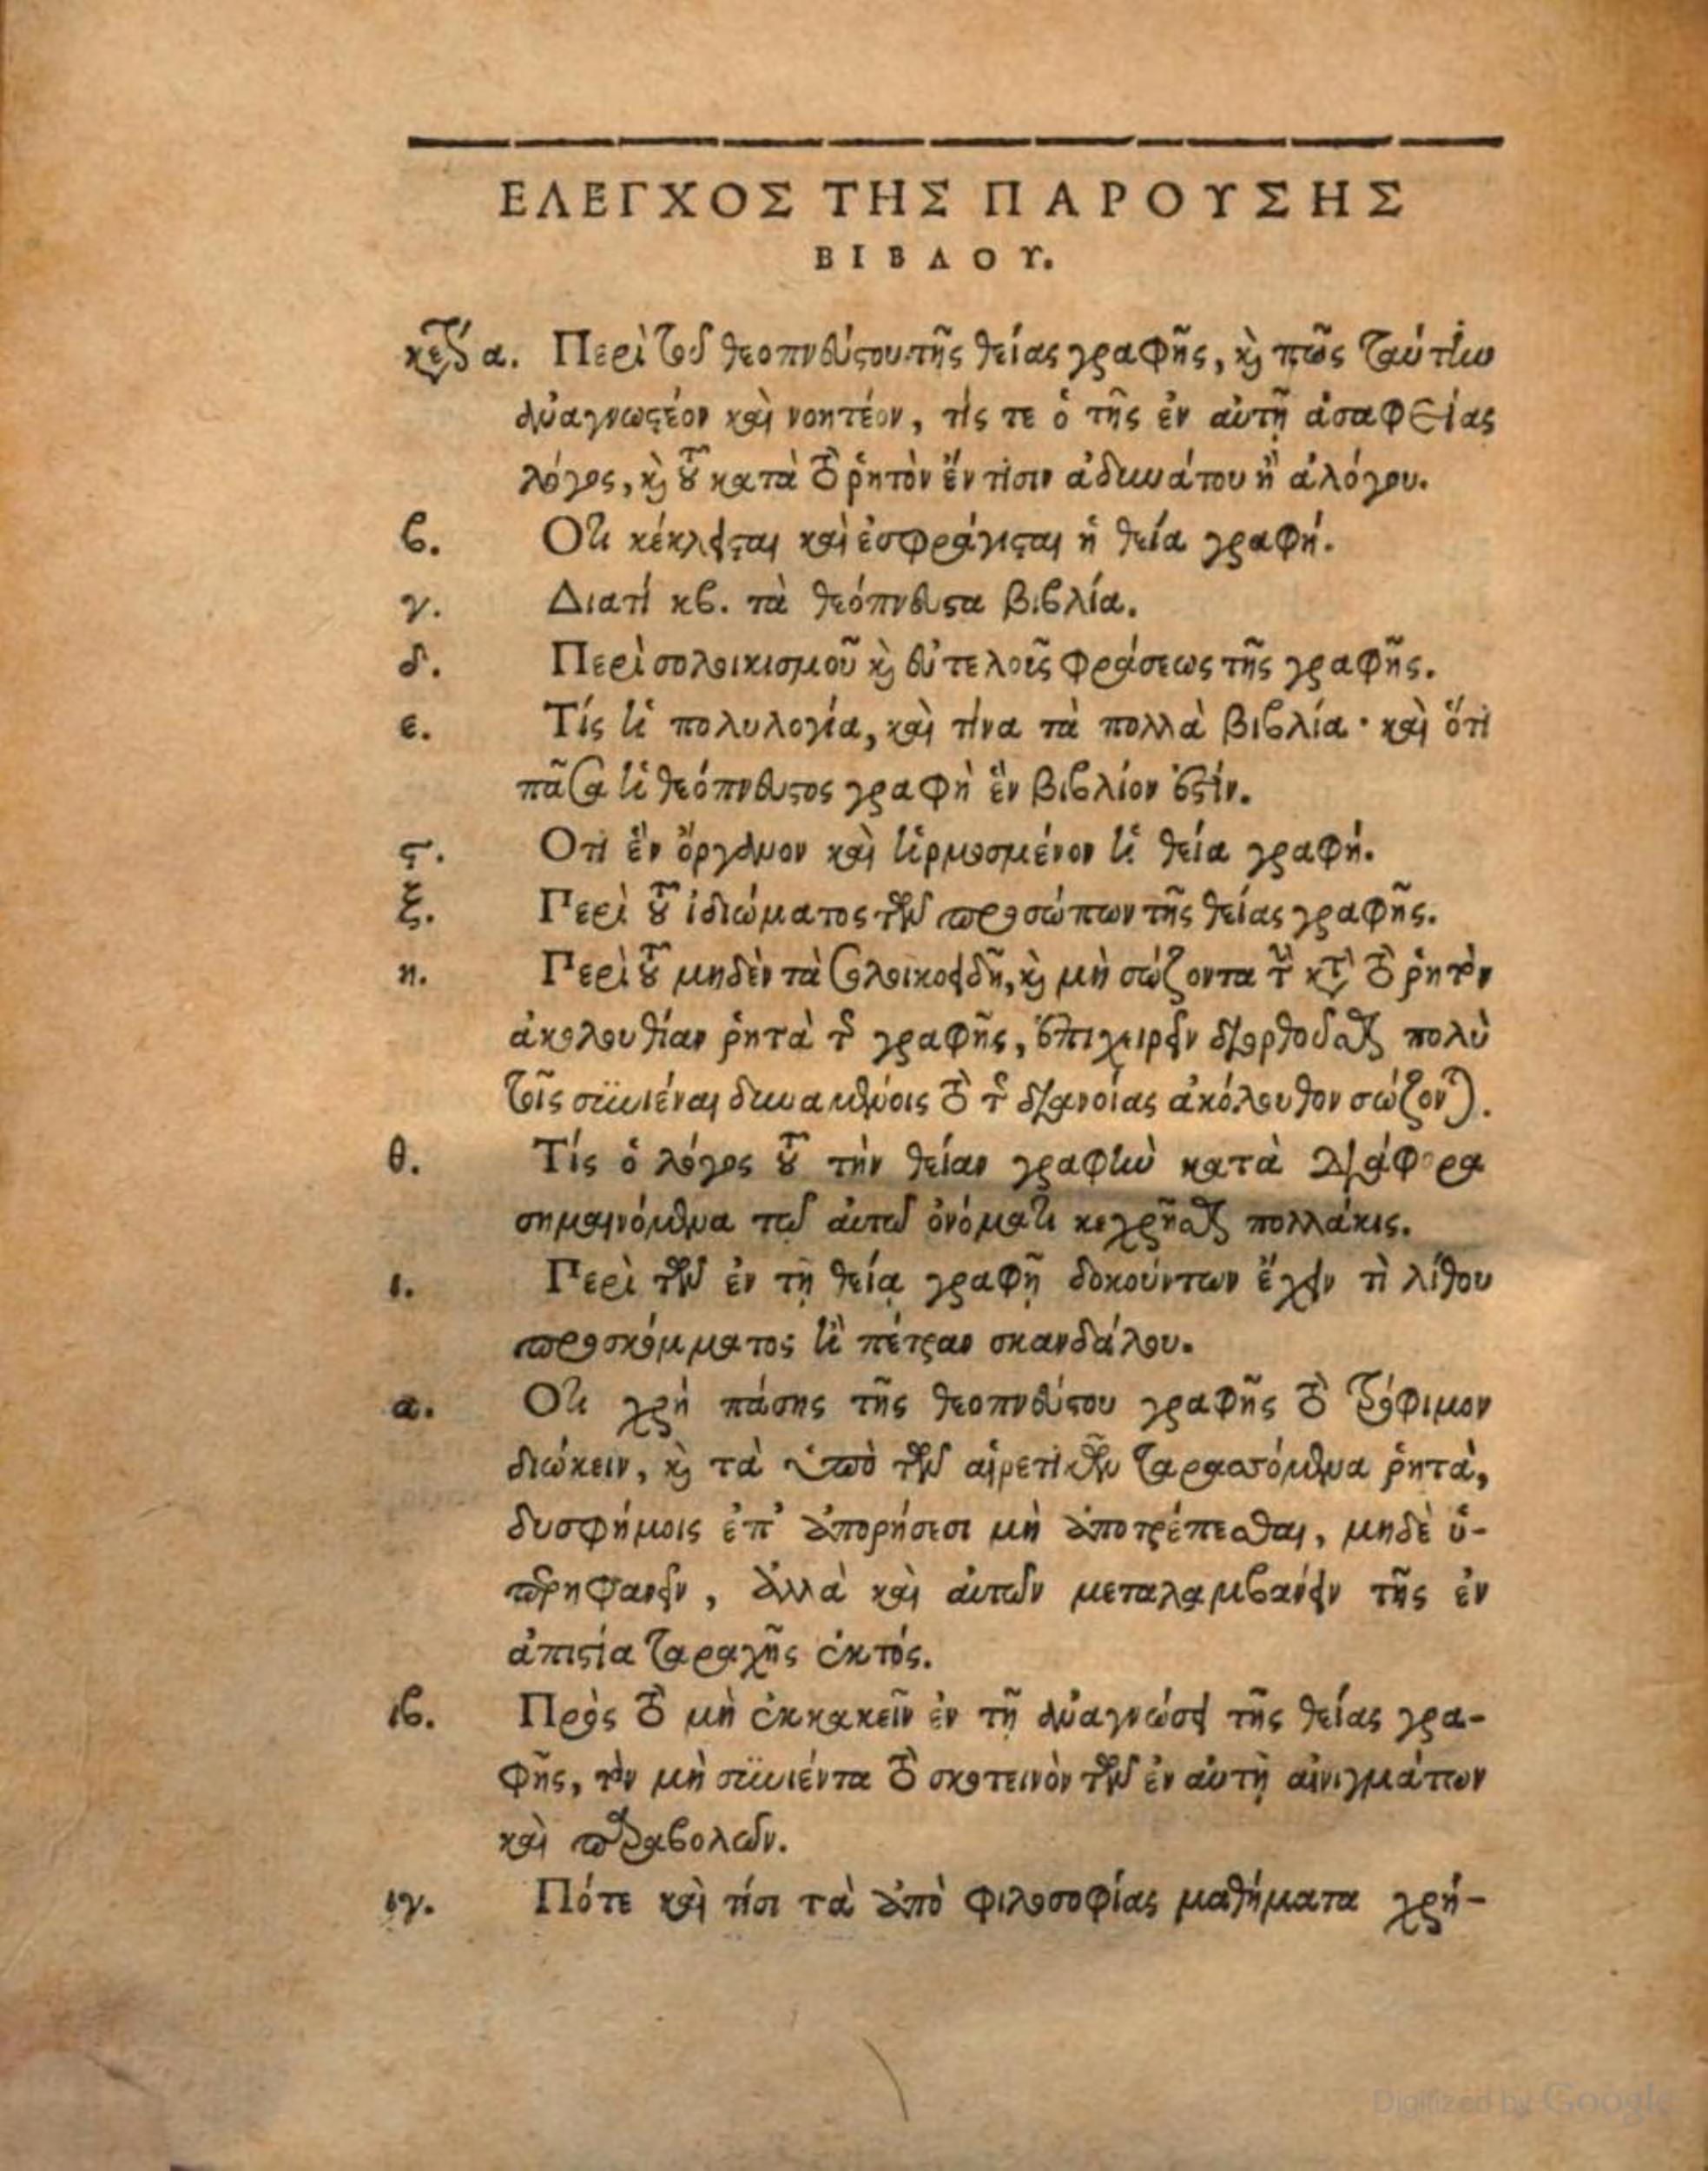 ΕΛΕΓΧΟΣ ΤΗΣ ΠΑΡΟΥΣΗΣ
ΒΙΒΛΟΥ.
κεφ α. Περὶ τοῦ θεοπνεύστου τῆς θείας γραφῆς, καὶ πῶς ταύτην
ἀναγνωστέον καὶ νοητέον, τίς τε ὁ τῆς ἐν αὐτῇ ἀσαφείας
λόγος, καὶ τοῦ κατὰ τὸ ῥητὸν ἔν τισιν ἀδυνάτου ἢ ἀλόγου.
β. Οτι κέκλεισται καὶ ἐσφράγισται ἡ θεία γραφή.
γ. Διατί κβ. τὰ θεόπνευστα βιβλία.
δ. Περὶ σολοικισμοῦ καὶ εὐτελοῦς φράσεως τῆς γραφῆς.
ε. Τίς ἡ πολυλογία, καὶ τίνα τὰ πολλὰ βιβλία· καὶ ὅτι
πᾶσα ἡ θεόπνευστος γραφὴ ἓν βιβλίον ἐστίν.
ϛ. Οτι ἓν ὄργανον καὶ ἡρμοσμένον ἡ θεία γραφή.
ξ. Περὶ τοῦ ἰδιώματος τῶν προσώπων τῆς θείας γραφῆς.
η. Περὶ τοῦ μηδὲν τὰ σολοικοειδῆ, καὶ μὴ σώζοντα τὴν κατὰ τὸ ῥητὸν
ἀκολουθίαν ῥητὰ τῆς γραφῆς, ἐπιχειρεῖν διορθοῦσθαι πολὺ
τοῖς συνιέναι δυναμένοις τὸ τῆς διανοίας ἀκόλουθον σώζοντα.
θ. Τίς ὁ λόγος τοῦ τὴν θείαν γραφὴν κατὰ διάφορα
σημαινόμενα τῷ αὐτῷ ὀνόματι κεχρῆσθαι πολλάκις.
ι. Περὶ τῶν ἐν τῇ θείᾳ γραφῇ δοκούντων ἔχειν τὶ λίθου
προσκόμματος ἢ πέτραν σκανδάλου.
α. Οτι χρὴ πάσης τῆς θεοπνεύστου γραφῆς τὸ τρόφιμον
διώκειν, καὶ τὰ ὑπὸ τῶν αἱρετικῶν ταρασσόμενα ῥητὰ,
δυσφήμοις ἐπ' ἀπορήσεσι μὴ ἀποτρέπεσθαι, μηδὲ ὑ-
περηφανεῖν, ἀλλὰ καὶ αὐτῶν μεταλαμβάνειν τῆς ἐν
ἀπιστία ταραχῆς ἐκτός.
ιβ. Πρὸς τὸ μὴ ἐκκακεῖν ἐν τῇ ἀναγνώσει τῆς θείας γρα-
φῆς, τὸν μὴ συνιέντα τὸ σκοτεινὸν τῶν ἐν αὐτῇ αἰνιγμάτων
καὶ παραβολῶν.
ιγ. Πότε καὶ τίσι τὰ ἀπὸ φιλοσοφίας μαθήματα χρή-
Digitized by Google